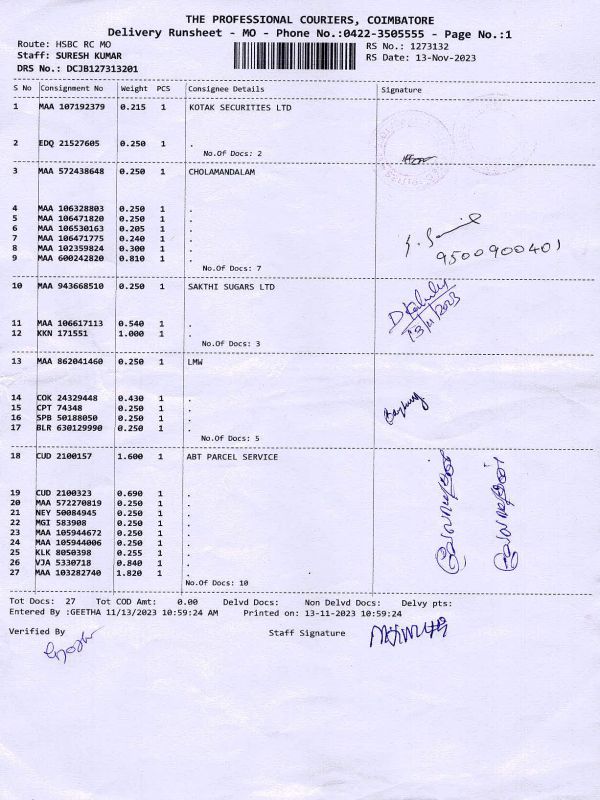 THE PROFESSIONAL COURIERS, COIMBATORE
Delivery Runsheet - MO - Phone No.:0422-3505555 - Page No.:1
Route: HSBC RC MO RS No.: 1273132
Staff: SURESH KUMAR RS Date: 13-Nov-2023
DRS No.: DCJB127313201
S No Consignment No Weight PCS Consignee Details Signature
1 MAA 107192379 0.215 1 KOTAK SECURITIES LTD
2 EDQ 21527605 0.250 1 .
No.Of Docs: 2
3 MAA 572438648 0.250 1 CHOLAMANDALAM
4 MAA 106328803 0.250 1 .
5 MAA 106471820 0.250 1 .
6 MAA 106530163 0.205 1 .
7 MAA 106471775 0.240 1 .
8 MAA 102359824 0.300 1 .
9 MAA 600242820 0.810 1 .
9500900401
No.Of Docs: 7
10 MAA 943668510 0.250 1 SAKTHI SUGARS LTD
13/11/2023
11 MAA 106617113 0.540 1 .
12 KKN 171551 1.000 1 .
No.Of Docs: 3
13 MAA 862041460 0.250 1 LMW
14 COK 24329448 0.430 1 .
15 CPT 74348 0.250 1 .
16 SPB 50188050 0.250 1 .
17 BLR 630129990 0.250 1 .
No.Of Docs: 5
18 CUD 2100157 1.600 1 ABT PARCEL SERVICE
19 CUD 2100323 0.690 1 .
20 MAA 572270819 0.250 1 .
21 NEY 50084945 0.250 1 .
22 MGI 583908 0.250 1 .
23 MAA 105944672 0.250 1 .
24 MAA 105944006 0.250 1 .
25 KLK 8050398 0.255 1 .
26 VJA 5330718 0.840 1 .
27 MAA 103282740 1.820 1 .
No.Of Docs: 10
Tot Docs: 27 Tot COD Amt: 0.00 Delvd Docs: Non Delvd Docs: Delvy pts:
Entered By :GEETHA 11/13/2023 10:59:24 AM Printed on: 13-11-2023 10:59:24
Verified By Staff Signature